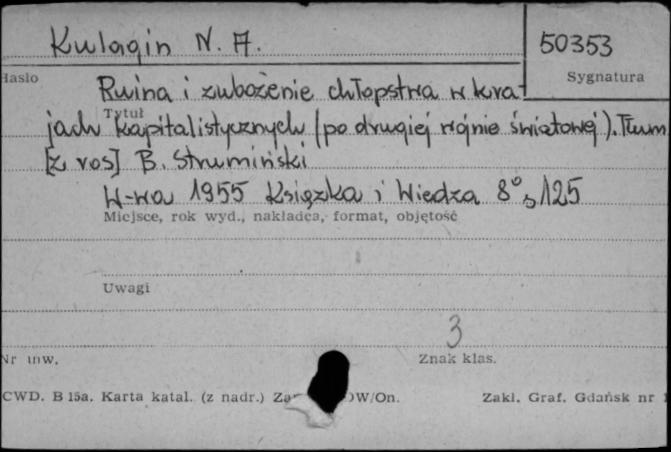 Kulagin N. A.
50353
Hasło
Sygnatura
Ruina i zubożenie chłopstwa w kra-
Tytuł
jach kapitalistycznych (po drugiej wojnie światowej). Tłum
[z ros] B. Strumiński
W-wa 1955 Książka i Wiedza 8° s 125
Miejsce, rok wyd., nakładca, format, objętość
Uwagi
3
Nr inw.
Znak klas.
CWD. B 15a. Karta katal. (z nadr.) OW/On.
Zakł. Graf. Gdańsk nr